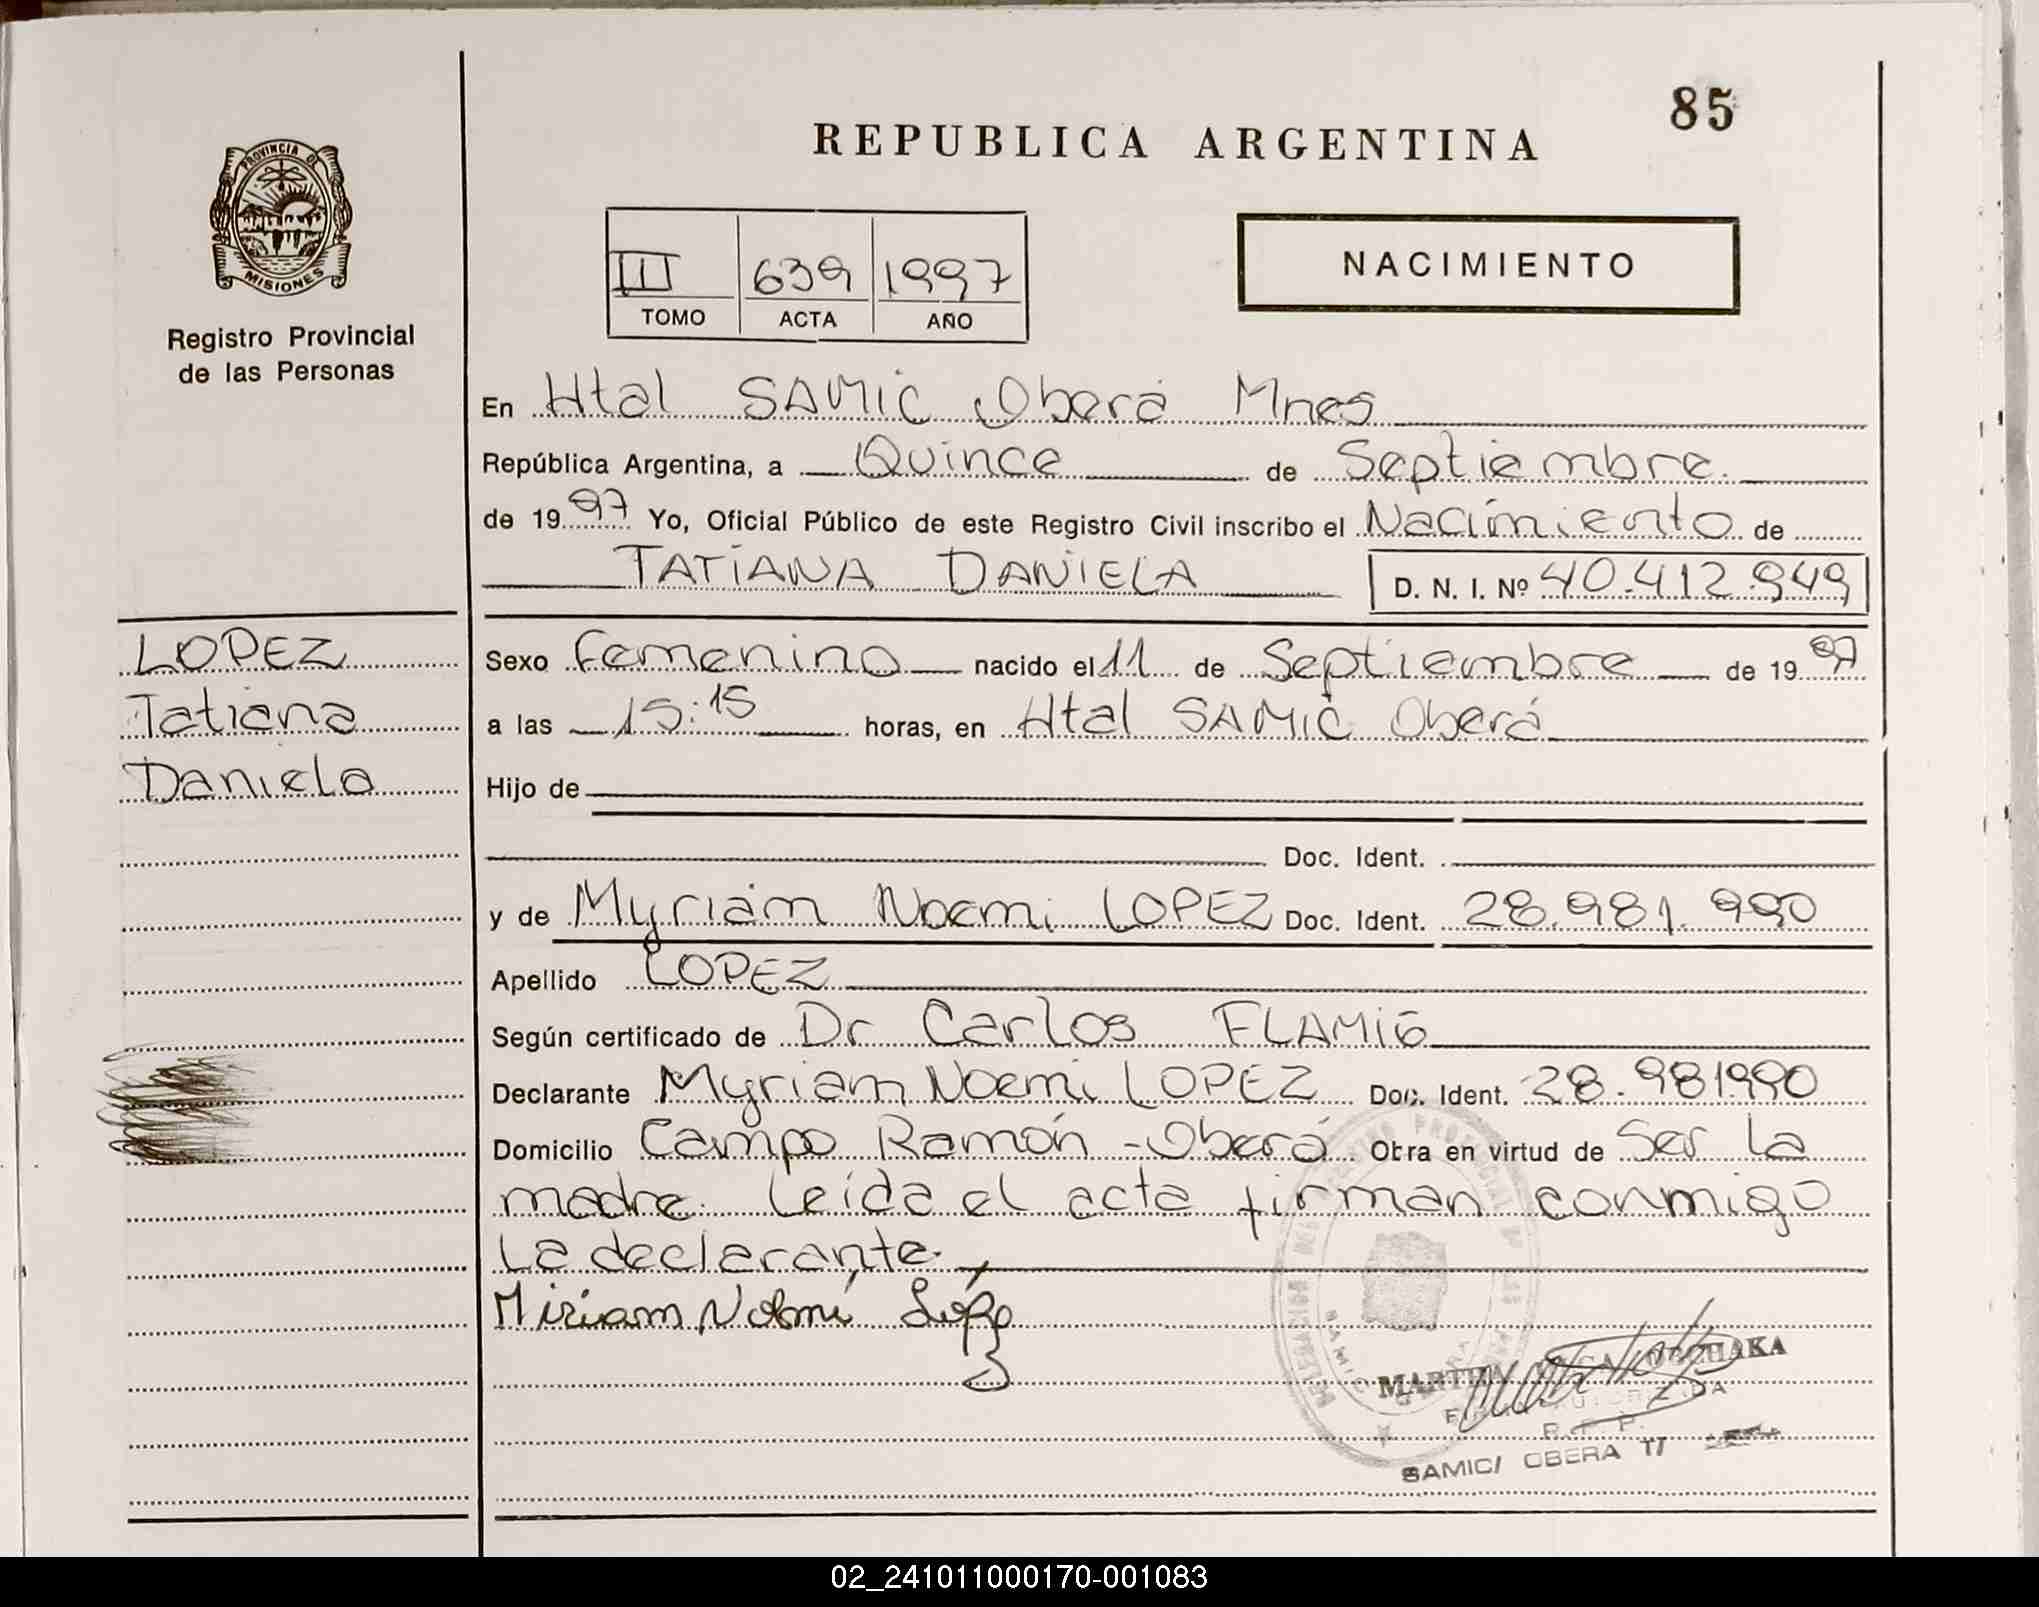 85
REPUBLICA ARGENTINA
PROVINCIA DE
MISIONES
Registro Provincial
de las Personas
III 639 1997
TOMO ACTA AÑO
NACIMIENTO
En Htal SAMIC Oberá Mnes
República Argentina, a Quince de Septiembre
de 1997 Yo, Oficial Público de este Registro Civil inscribo el Nacimiento de
TATIANA DANIELA D. N. I. Nº 40.412.949
LOPEZ
Tatiana
Daniela
Sexo Femenino nacido el 11 de Septiembre de 1997
a las 15:15 horas, en Htal SAMIC Oberá
Hijo de
Doc. Ident.
y de Myriam Noemi LOPEZ Doc. Ident. 28.981.990
Apellido LOPEZ
Según certificado de Dr Carlos
Declarante Myriam Noemi LOPEZ Doc. Ident. 28.981990
Domicilio Campo Ramón - Oberá Otra en virtud de Ser la
madre. Leída el acta firman conmigo
la declarante.
Miriam Noemí
SAMIC/ OBERA
02_241011000170-001083